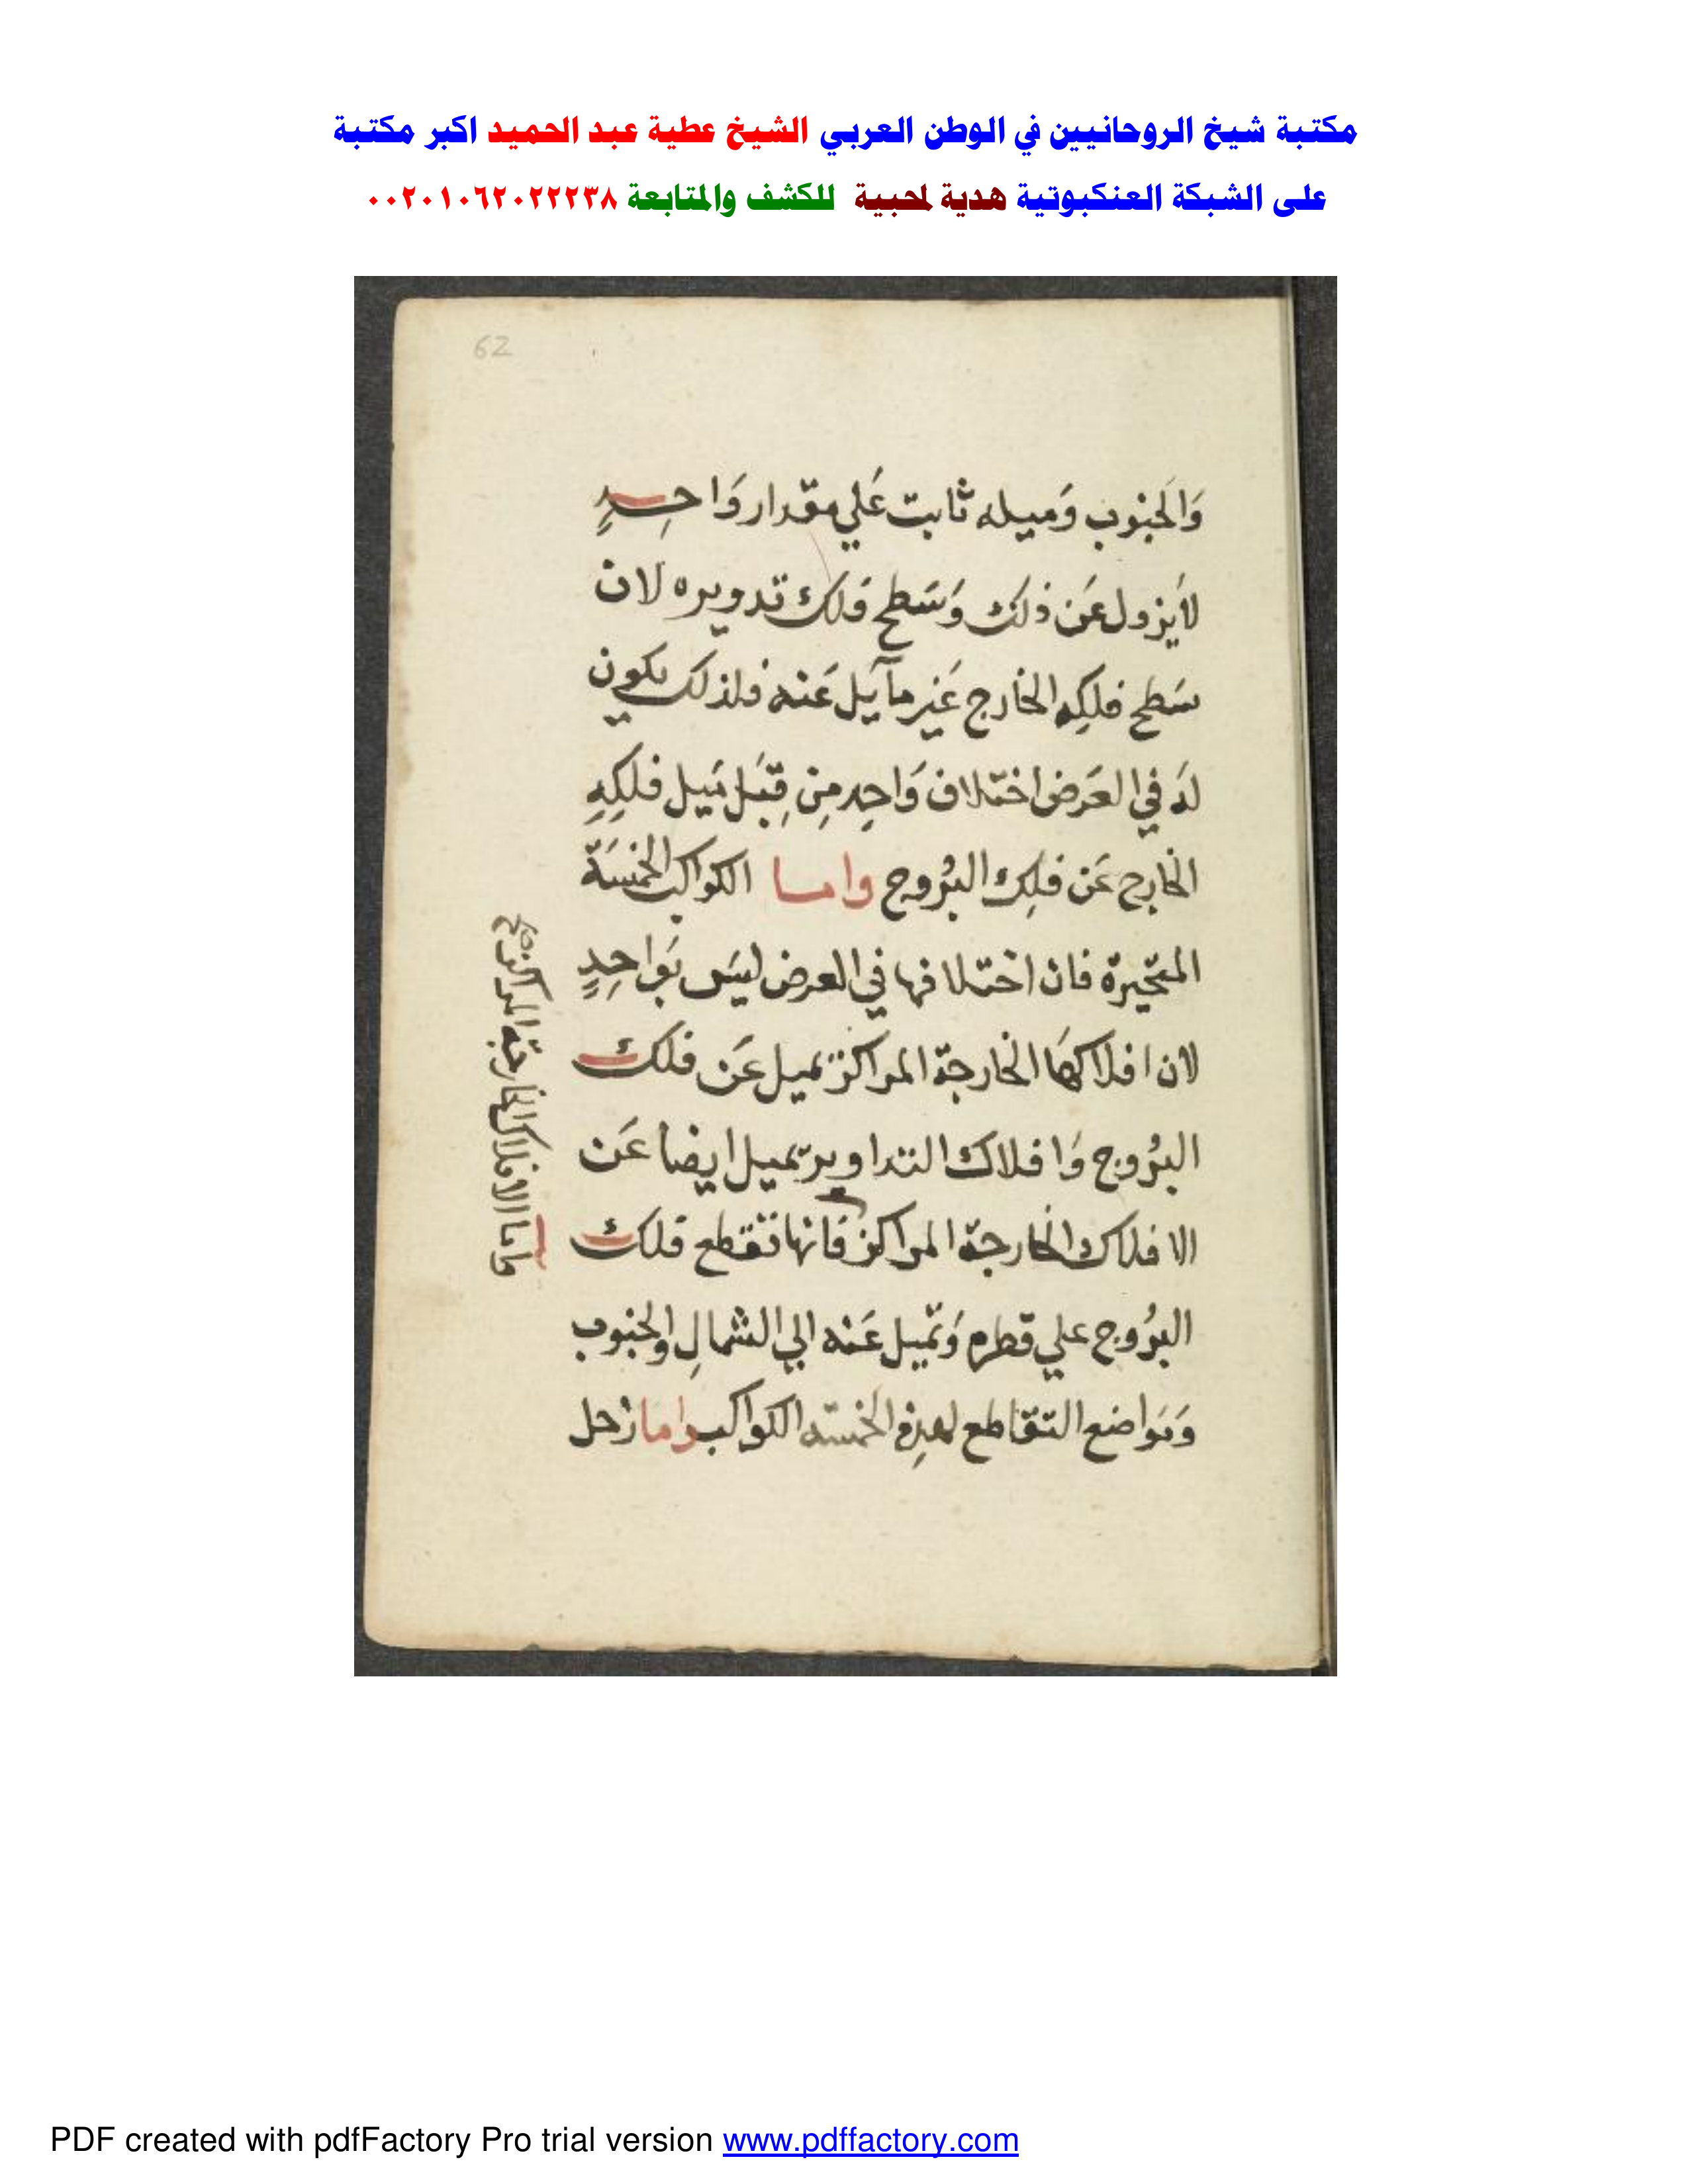 مكتبة شيخ الروحانيين في الوطن العربي الشيخ عطية عبد الحميد اكبر مكتبة
على الشبكة العنكبوتية هدية لمحبية للكشف والمتابعة ٠٠٢٠١٠٦٢٠٢٢٢٣٨
62
وَالجَنوب وَميله ثابت عَلي مقدار وَاحِدٍ
لاَيزول عَن ذلك وَسَطح فلك تدويره لان
سَطح فلكِه الخارج غَير مآيل عَنه فلذلك يكون
لهَ في العَرض اختلاف وَاحِد مِن قِبَل مَيل فلكِهِ
الخارج عَن فلِك البُروج واما الكواكب الخمسَة
المتحيرة فان اختلافها في العرض ليسَ بوَاحِدٍ
لان افلاكهَا الخارجة المراكز تميل عَن فلك
البُروج وَافلاك التداوير تميل ايضا عَن
الافلاك الخارجة المراكز فَانها تقطع فلك
البرُوج علي قطره وَتميل عَنه الي الشمالِ والجنوب
وَمَواضع التقاطع لهذِه الخمسَه الكواكب واما زحل
فاما الافلاك الخارجة المراكز صح
PDF created with pdfFactory Pro trial version www.pdffactory.com